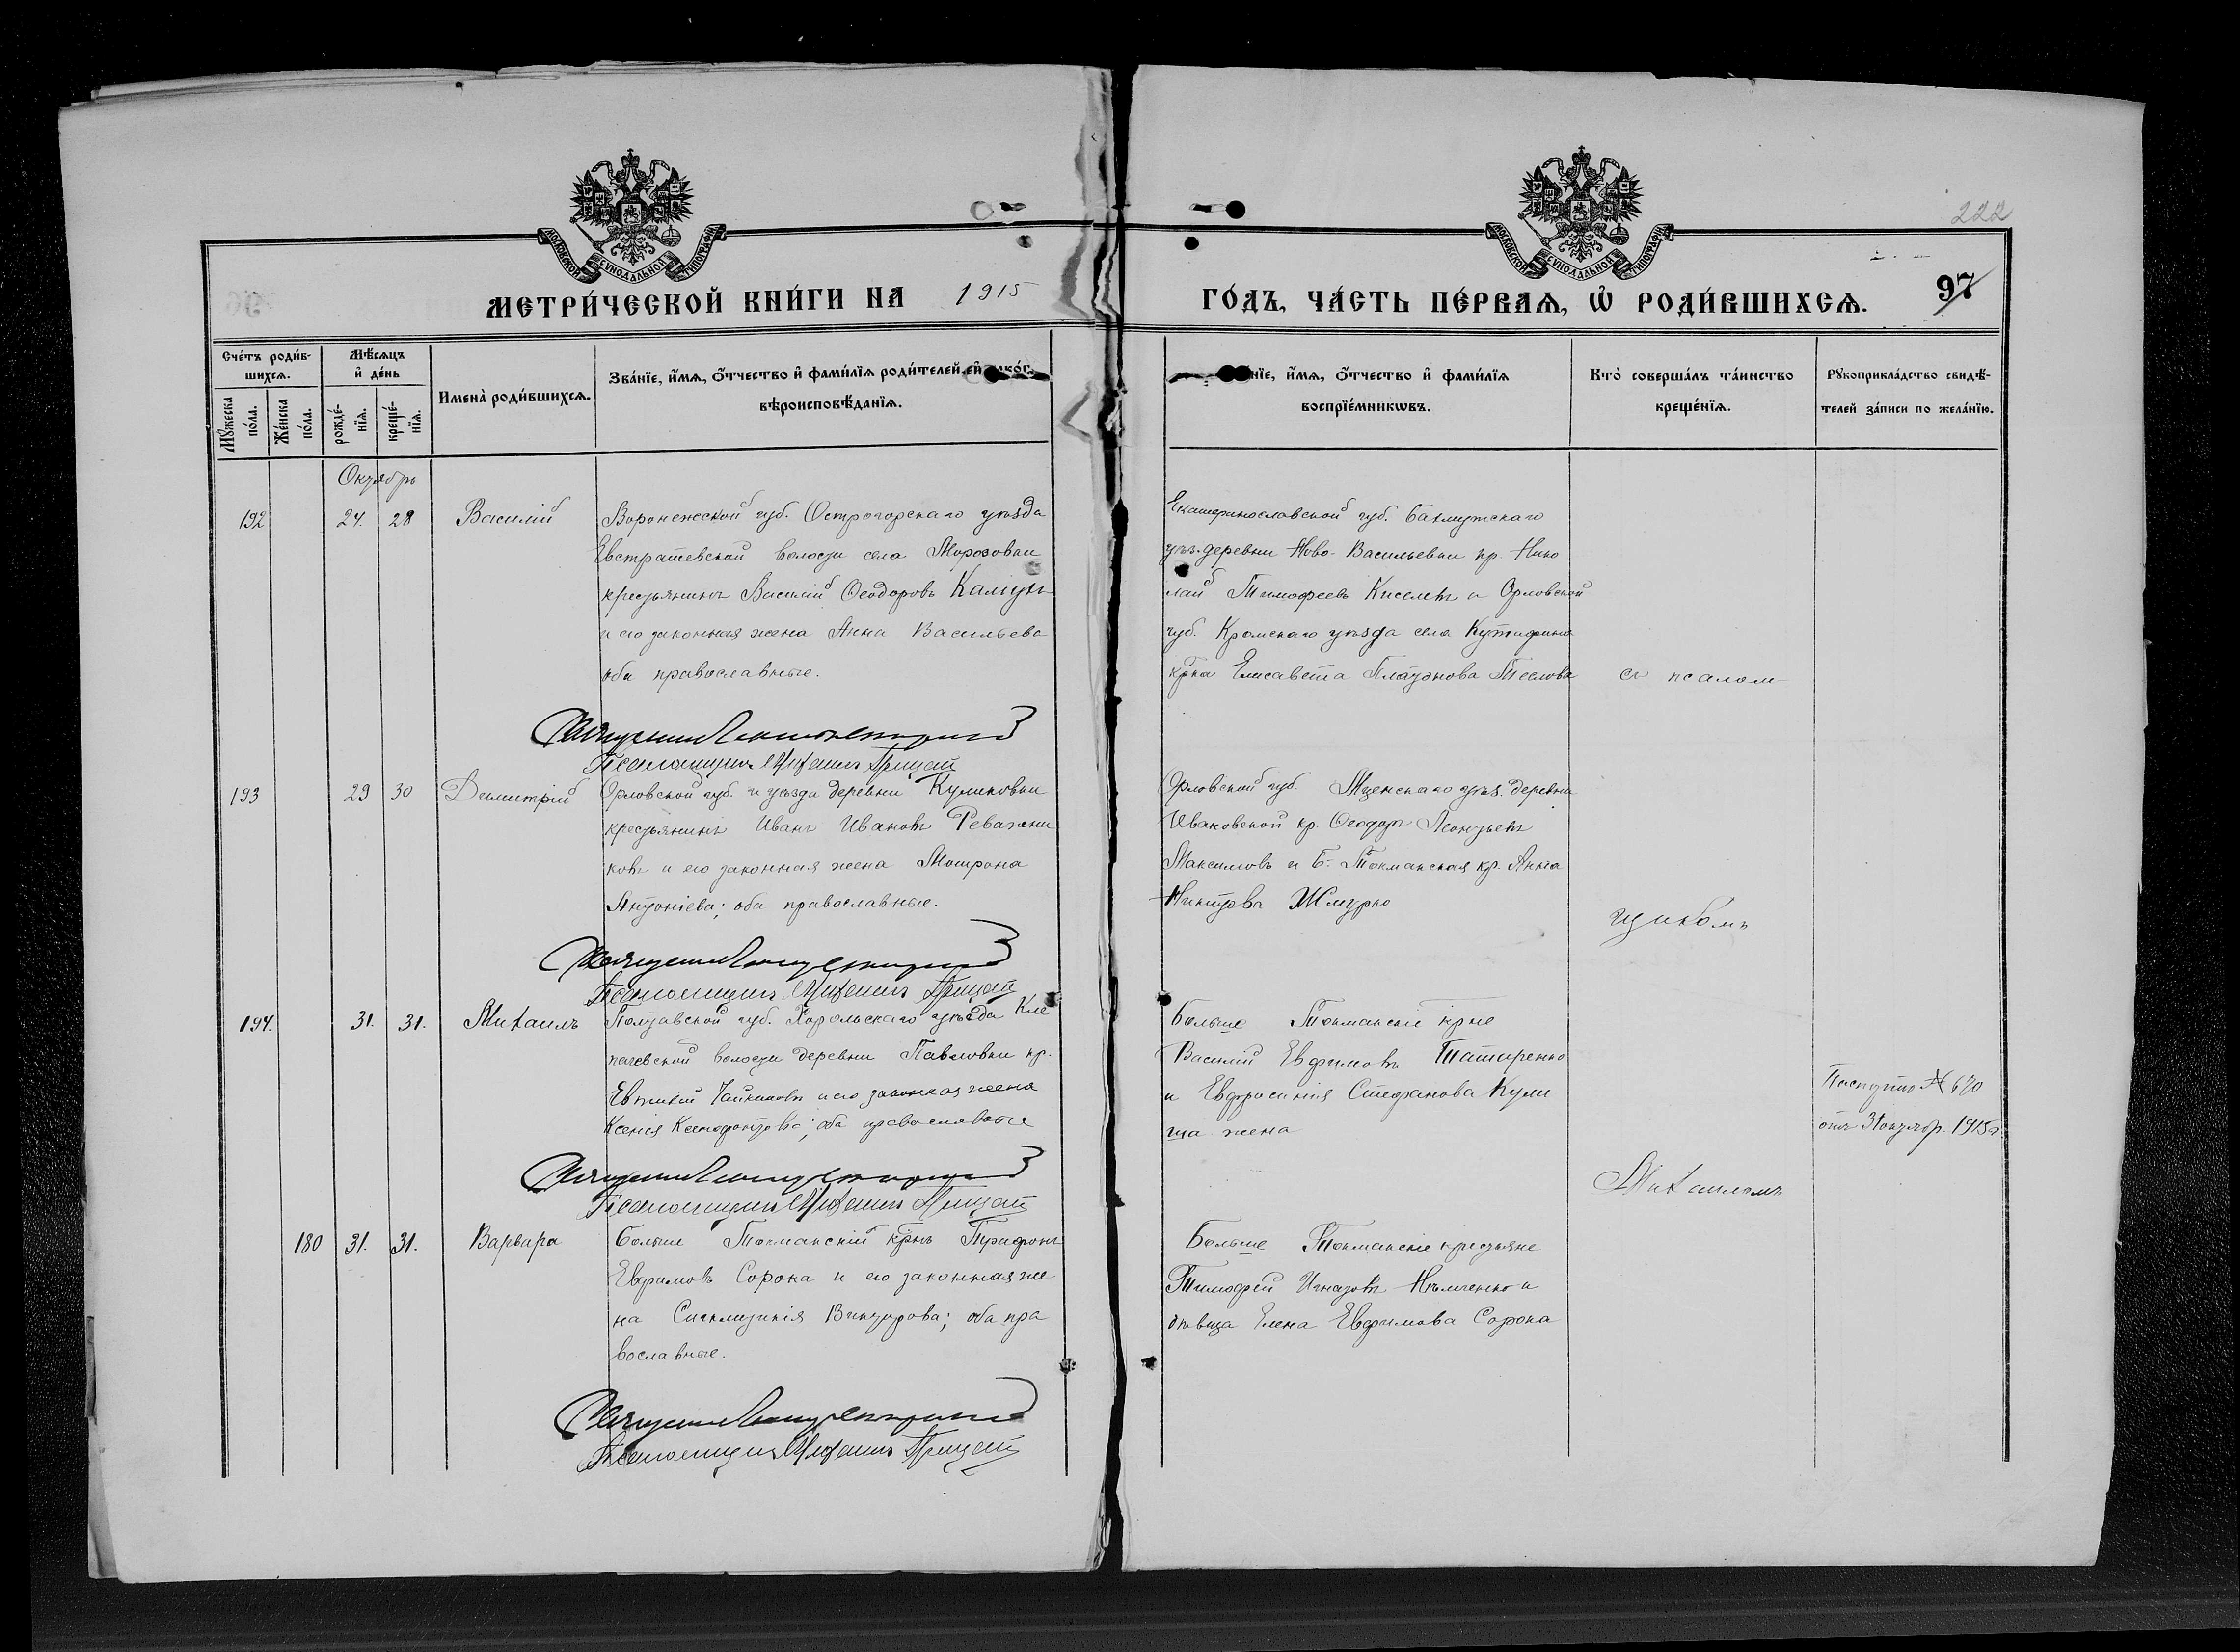 222
МОСКОВСКОЙ СѴНОДАЛЬНОЙ ТИПОГРАФІИ
МОСКОВСКОЙ СѴНОДАЛЬНОЙ ТИПОГРАФІИ
МЕТРИ́ЧЕСКОЙ КНИ́ГИ НА 1915
ГО́ДЪ, ЧА́СТЬ ПЕ́РВАѦ, Ѡ҆ РОДИ́ВШИХСѦ. 97
Сче́тъ роди́в-
шихсѧ.
Мꙋ́жеска
по́ла.
Же́нска
по́ла.
Мѣ́сѧцъ
и҆ де́нь
рожде́-
нїѧ.
креще́-
нїѧ.
Имена̀ роди́вшихсѧ.
Зва́нїе, и҆́мѧ, ѻ҆́тчество и҆ фами́лїѧ роди́телей, и҆
вѣроисповѣ́данїѧ.
и҆́мѧ, ѻ҆́тчество и҆ фами́лїѧ
воспрїе́мникѡвъ.
Кто̀ соверша́лъ та́инство
креще́нїѧ.
Рꙋкоприкла́дство свидѣ́-
телей за́писи по жела́нїю.
Октябрь
192 24. 28 Василій
Воронежской губ. Острогорскаго уѣзда
Евстратевской волости села Морозовки
крестьянинъ Василій Ѳеодоровъ
и его законная жена Анна Васильева
оба православные.
Екатеринославской губ. Бахмутскаго
уѣз. деревни Ново-Васильевки кр. Нико
лай Тимофеевъ Киселевъ и Орловской
губ. Кромскаго уѣзда села
кр҃ка Елисавета
съ псалом-
Псаломщикъ Михаилъ Грицай
193 29 30 Димитрій
Орловской губ. и уѣзда деревни Куликовки
крестьянинъ Иванъ Ивановъ
ковъ и его законная жена Матрона
Антоніева; оба православные.
Орловской губ. Мценскаго уѣз. деревни
Ивановской кр. Ѳеодоръ Леонтьевъ
Максимовъ и Б.-Токмакская кр. Анна
Никитова Жмурко
щикомъ
Псаломщикъ Михаилъ Грицай
194. 31. 31. Михаилъ
Полтавской губ. Хорольскаго уѣзда Кле
пачевской волости деревни Павловки кр.
Евтихій Чайкинъ и его законная жена
Ксенія Ксенофонтова; оба православные
Больше Токмакскіе кр҃не
Василій Евфимовъ Татаренко
и Евфросинія Стефанова Кули
жена
Паспортъ № 670
отъ 31 октябр. 1915 г.
Михаиломъ
Псаломщикъ Михаилъ Грицай
180 31. 31. Варвара
Больше Токмакскій кр҃нъ Трифонъ
Евфимовъ Сорока и его законная же
на Сигклитикія Викторова; оба пра
вославные.
Больше Токмакскіе крестьяне
Тимофей Игнатовъ Нѣмченко и
дѣвица Елена Евфимова Сорока
Псаломщикъ Михаилъ Грицай